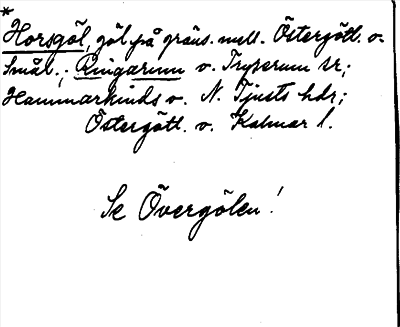 *
Horsgöl, göl på gräns. mell. Östergötl. o.
Smål.; Ringarum o. Tryserum sr;
Hammarkinds o. N. Tjusts hdr;
Östergötl. o. Kalmar l.
Se Övergölen!